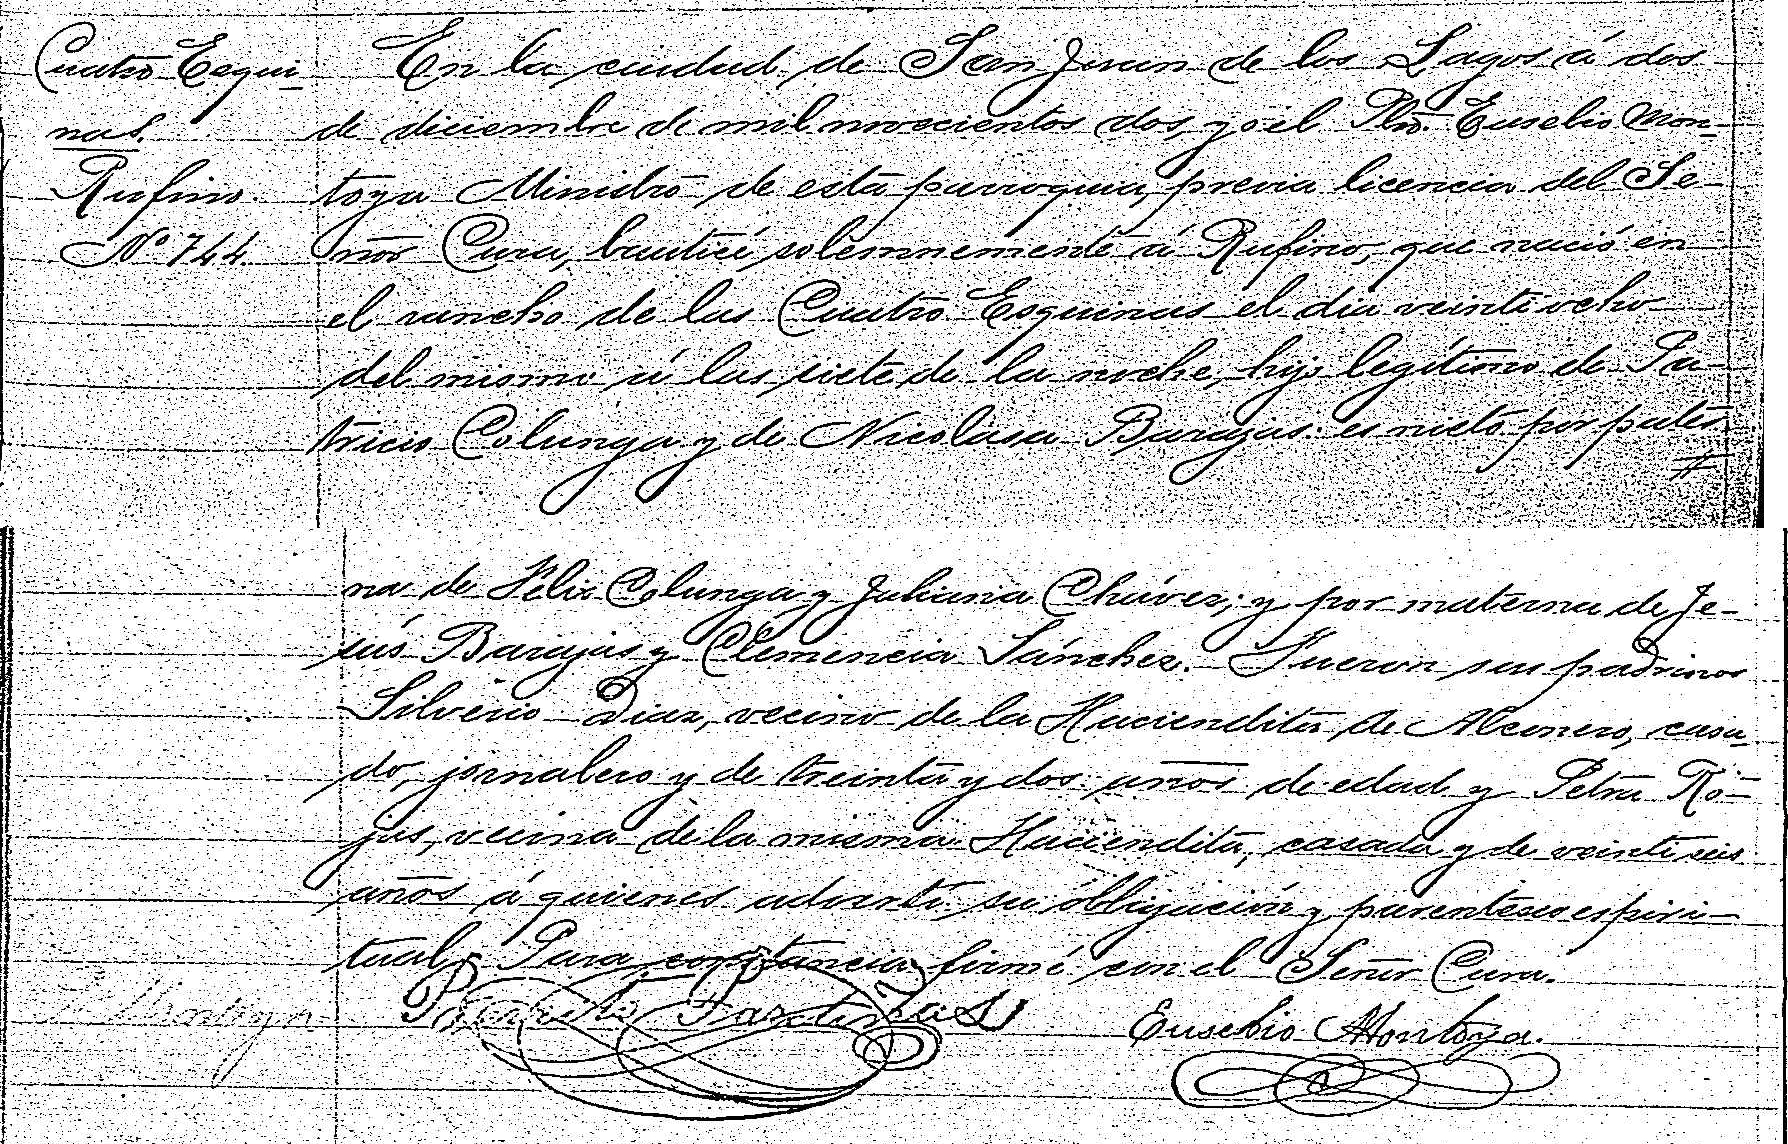 Cuatro Esqui-
nas.
Rufino.
Nº 744.
En la ciudad de San Juan de los Lagos á dos
de diciembre de mil novecientos dos, yo el Pbro. Eusebio Mon-
toya Ministro de esta parroquia, previa licencia del Se-
ñor Cura, bauticé solemnemente á Rufino, que nació en
el rancho de las Cuatro Esquinas el dia veintiocho
del mismo á las siete de la noche, hijo legítimo de Pa-
tricio Colunga y de Nicolasa Barajas: es nieto por pater-
#
na de Félix Colunga y Juliana Chávez; y por materna de Je-
sús Barajas y Clemencia Sánchez. Fueron sus padrinos
Silverio Diaz, vecino de la Haciendita de Alconero, casa-
do, jornalero y de treinta y dos años de edad y Petra Ro-
jas, vecina de la misma Haciendita, casada y de veintiseis
años á quienes advertí su obligación y parentesco espiri-
tual. Para constancia firmé con el Señor Cura.
Eusebio Montoya.